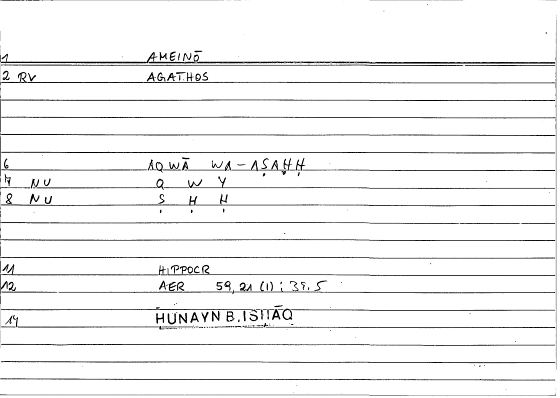 1 AMEINŌ
2 RV AGATHOS
6 AQWĀ WA-AṢAḤḤ
7 NU Q W Y
8 NU Ṣ Ḥ Ḥ
11 HIPPOCR
12 AER 59,21 (1); 39.5
14 ḤUNAYN B.ISḤĀQ